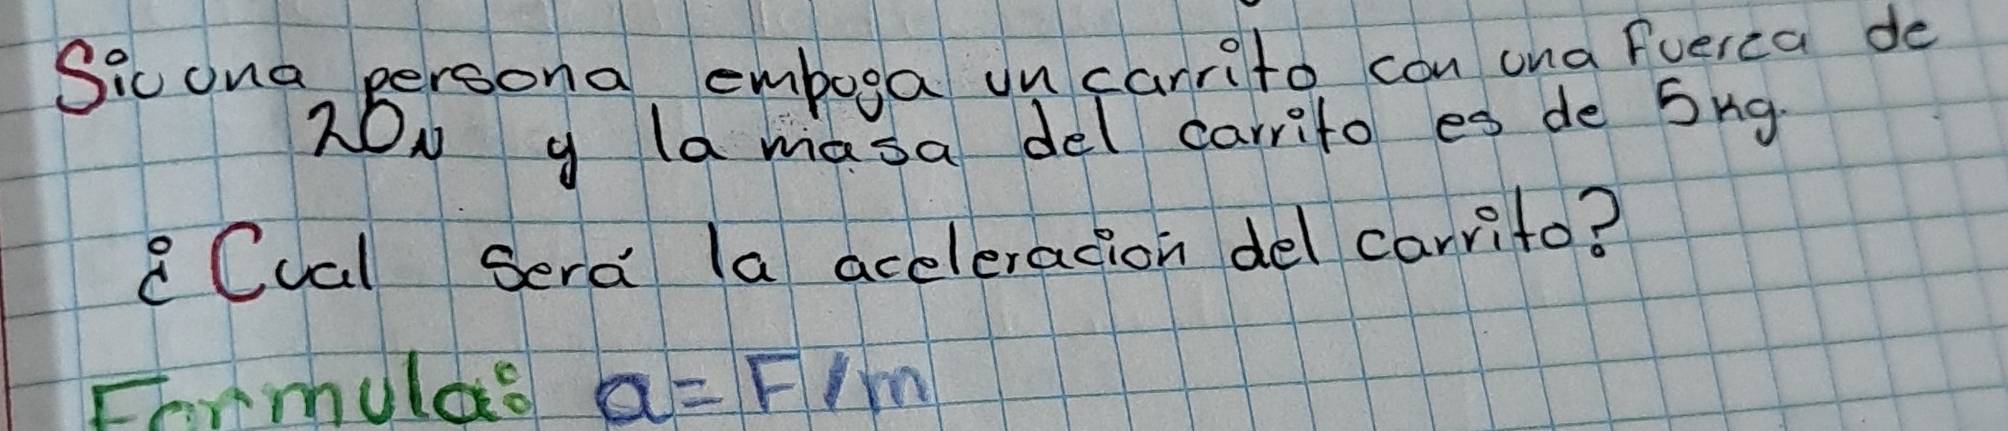 Sic una persona empuga un carrito con una fuerza de
20N y la masa del carrito es de 5kg.
¿Cual Será la aceleración del carrito?
Formula: a=F/m